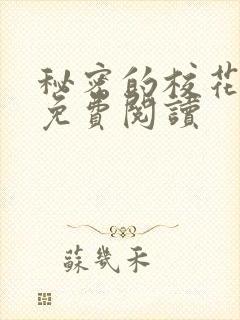 秘密的校花
免費閱讀
蘇幾禾